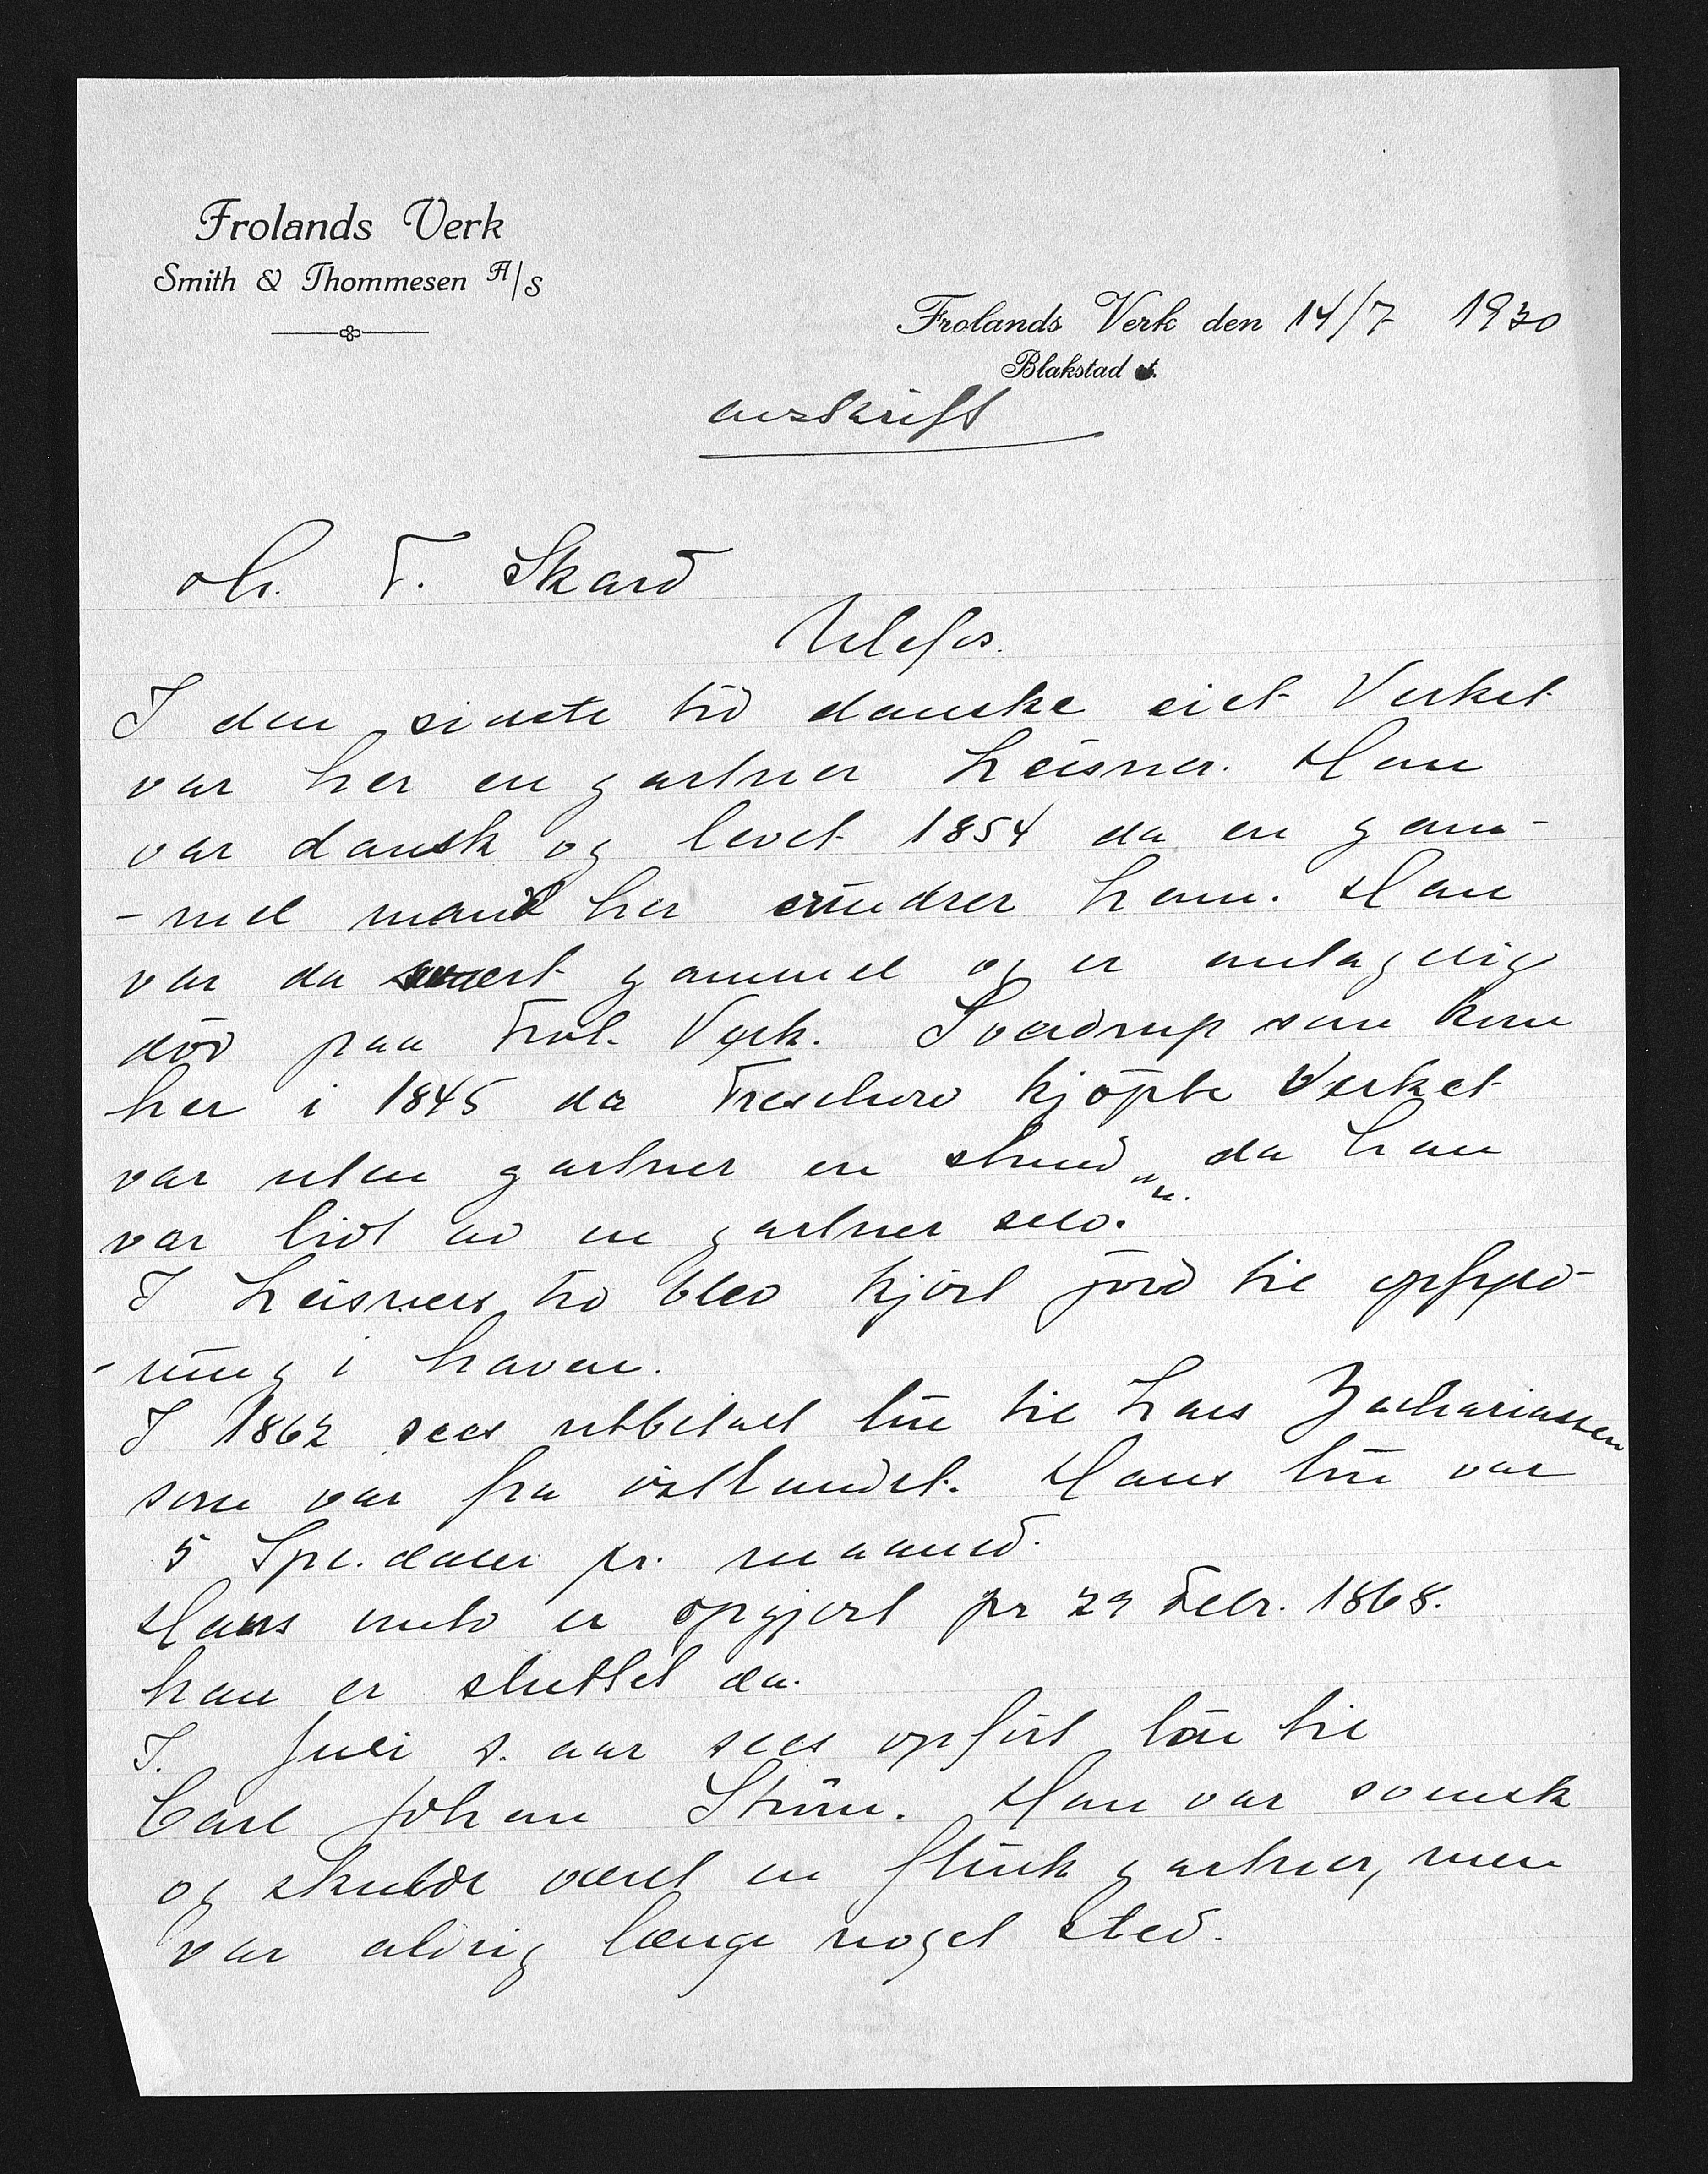 Frolands Verk
Smith & Thommesen A/S
Frolands Verk den 14/7 1930
Blakstad st.
avskrift
Hr. T. Skard
Ulefos.
I den sidste tid danske eiet Verket
var her en gartner Leisner. Han
var dansk og levet 1854 da en gam-
-mel mand her erindrer ham. Han
var da svært gammel og er antagelig
død paa Frol. Verk. Sverdrup som kom
her i 1845 da Treschow kjøpte Verket
var uten gartner en stund "da han
var lidt av en gartner selv."
I Leisners tid blev kjørt jord til opfyld-
-ning i haven.
I 1862 sees utbetalt løn til Lars Zachariassen
som var fra østlandet. Hans løn var
5 Spe.daler pr. maaned.
Hans conto er opgjort pr 29 Febr. 1868.
han er sluttet da.
I. Juli s. aar sees opført løn til
Carl Johan Ström. Han var svensk
og skulde været en flink gartner, men
var aldrig længe noget sted.